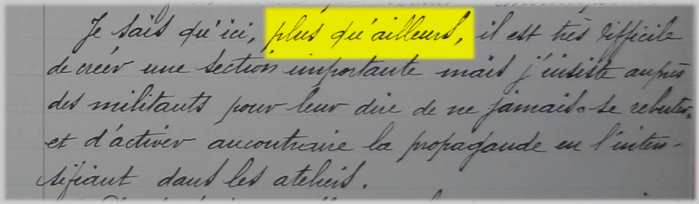 Je sais qu'ici, plus qu'ailleurs, il est très difficile
de créer une section importante mais j'insiste auprès
des militants pour leur dire de ne jamais se rebuter
et d'activer aucontraire la propagande en l'inten-
sifiant dans les ateliers.